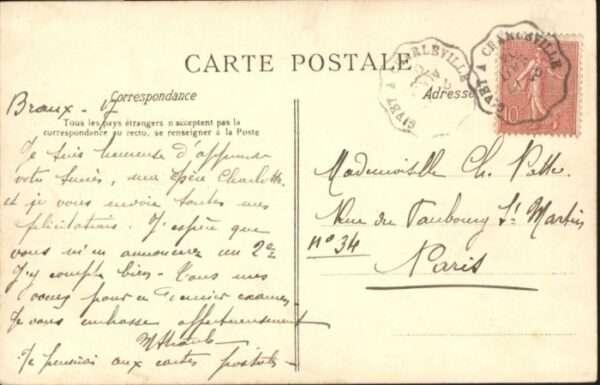 CARTE POSTALE
Correspondance
Tous les pays étrangers n'acceptent pas la
correspondance au recto, se renseigner à la Poste
Adresse
CHARLEVILLE A GIVET
CHARLEVILLE A GIVET
10
Braux - 17
Je suis heureuse d'apprendre
votre succès, ma chère Charlotte
et je vous envoie toutes mes
félicitations. J'espère que
vous m'en annoncerez un 2e
J'y compte bien. Tous mes
voeux pour ce dernier examen.
Je vous embrasse affectueusement
Je pensais aux cartes postales
Mademoiselle Ch.
Rue du Faubourg St Martin
no 34
Paris